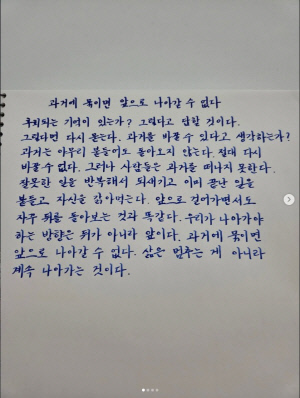 과거에 묶이면 앞으로 나아갈 수 없다
후회되는 기억이 있는가? 그렇다고 답할 것이다.
그렇다면 다시 묻는다. 과거를 바꿀 수 있다고 생각하는가?
과거는 아무리 붙들어도 돌아오지 않는다. 절대 다시
바꿀 수 없다. 그러나 사람들은 과거를 떠나지 못한다.
잘못한 일을 반복해서 되새기고 이미 끝난 일을
붙들고 자신을 갉아먹는다. 앞으로 걸어가면서도
자주 뒤를 돌아보는 것과 똑같다. 우리가 나아가야
하는 방향은 뒤가 아니라 앞이다. 과거에 묶이면
앞으로 나아갈 수 없다. 삶은 멈추는 게 아니라
계속 나아가는 것이다.